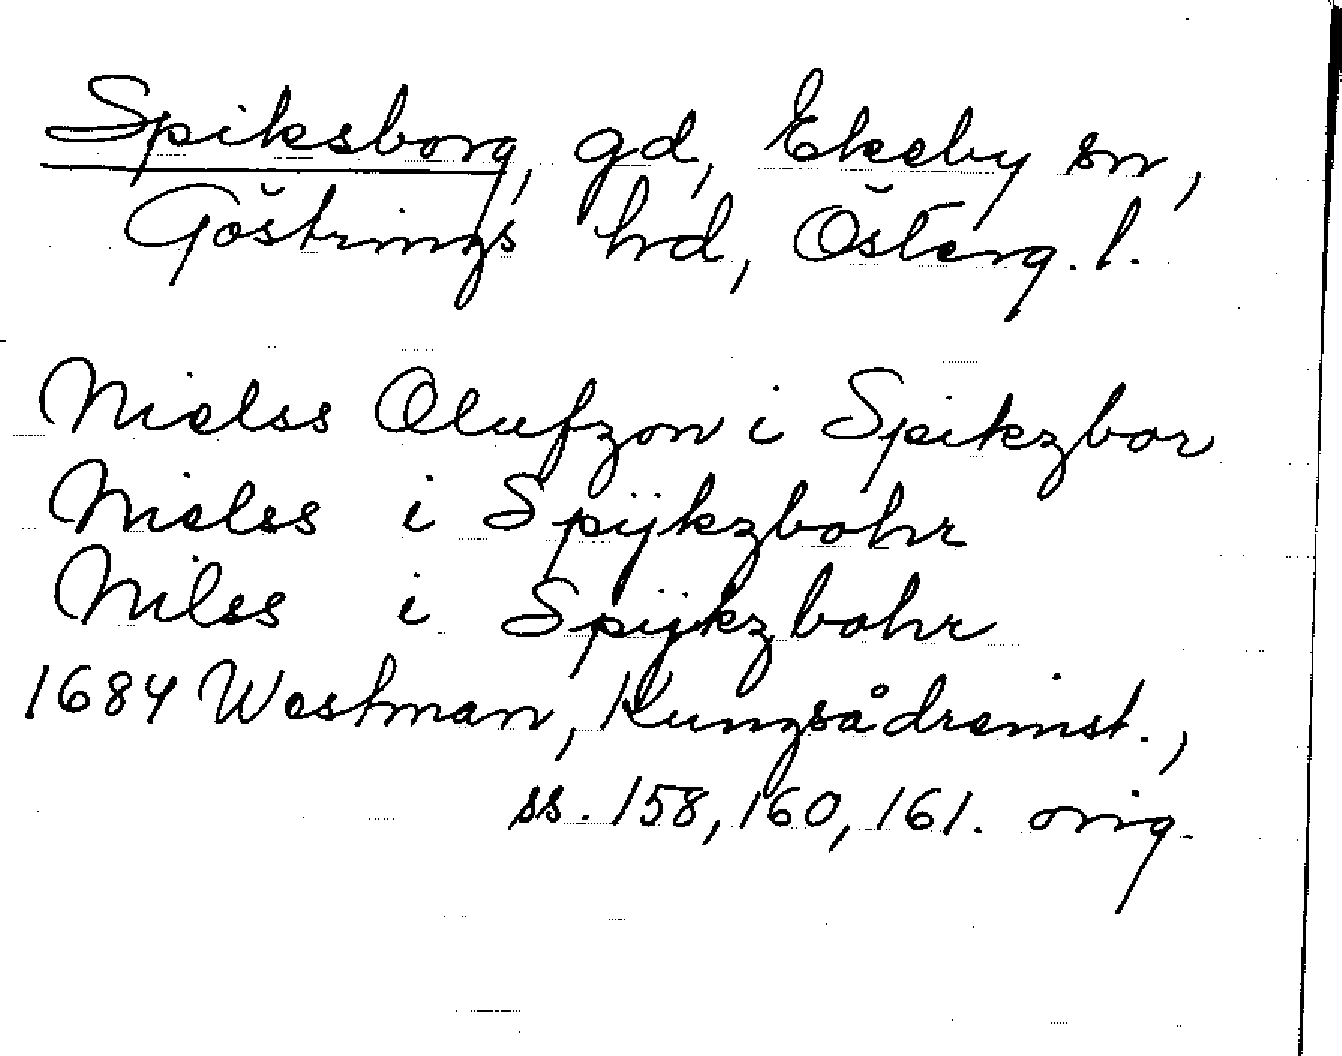 Spiksborg, gd, Ekeby sn,
Göstrings hd, Österg. l.
Nielss Olufzon i Spikzbor
Nielss i Spÿkzbohr
Nilss i Spÿkzbohr
1684 Westman, Kungsådremist.,
ss. 158, 160, 161. orig.